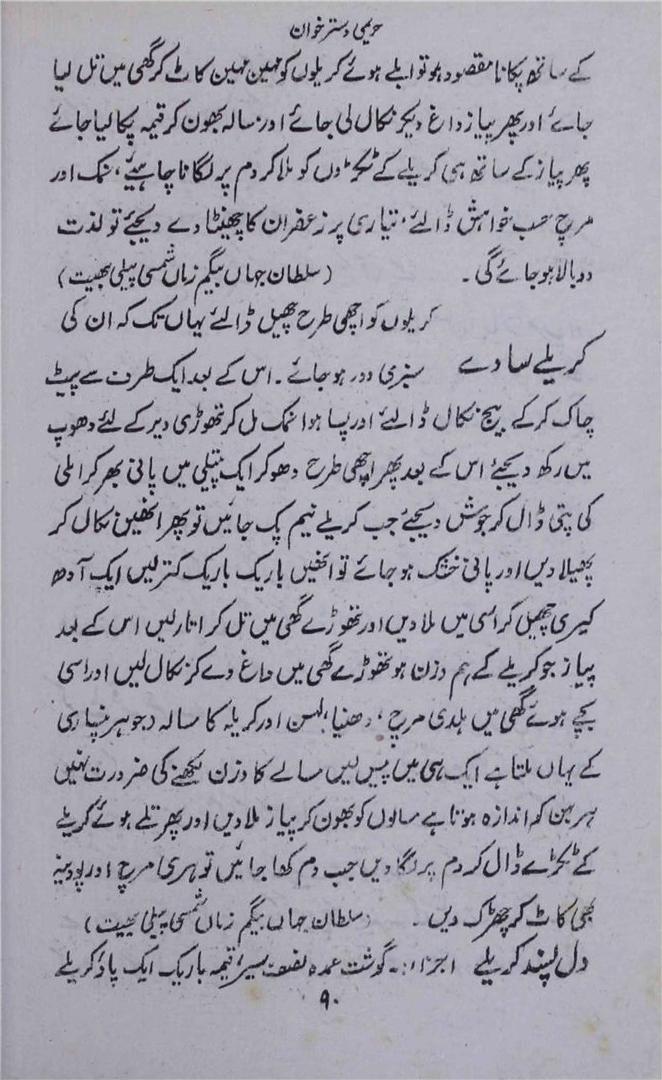 حریمی دسترخوان
کے ساتھ پکانا مقصود ہو تو ابلے ہوئے کریلوں کو مہین مہین کاٹ کر گھی میں تل لیا
جائے اور پھر پیاز داغ دیکر نکال لی جائے اور مسالہ بھون کر قیمہ پکا لیا جائے
پھر پیاز کے ساتھ ہی کریلے کے ٹکڑوں کو ملا کر دم پر لگانا چاہیئے، نمک اور
مرچ حسب خواہش ڈالئے، تیاری پر زعفران کا چھینٹا دے دیجئے تو لذت
دوبالا ہو جائے گی۔ (سلطان جہاں بیگم زماں شمسی پیلی بھیت)
کریلوں کو اچھی طرح چھیل ڈالئے یہاں تک کہ ان کی
کریلے سادے سبزی دور ہو جائے۔ اس کے بعد ایک طرف سے پیٹ
چاک کر کے بیج نکال ڈالئے اور پسا ہوا نمک مل کر تھوڑی دیر کے لئے دھوپ
میں رکھ دیجئے اس کے بعد پھر اچھی طرح دھو کر ایک پتیلی میں پانی بھر کر املی
کی پتی ڈال کر جوش دیجئے جب کریلے نیم پک جائیں تو پھر انھیں نکال کر
پھیلا دیں اور پانی خشک ہو جائے تو انھیں باریک باریک کتر لیں ایک آدھ
کیری چھیل کر اسی میں ملا دیں اور تھوڑے گھی میں تل کر اتار لیں اس کے بعد
پیاز جو کریلے کے ہم وزن ہو تھوڑے گھی میں داغ دے کر نکال لیں اور اسی
بچے ہوئے گھی میں ہلدی مرچ، دھنیا، لہسن اور کریلہ کا مسالہ (جو ہر پنساری
کے یہاں ملتا ہے ایک ہی میں پیس لیں مسالے کا وزن لکھنے کی ضرورت نہیں
ہر بہن کو اندازہ ہوتا ہے مسالوں کو بھون کر پیاز ملا دیں اور پھر تلے ہوئے کریلے
کے ٹکڑے ڈال کر دم پر لگا دیں جب دم کھا جائیں تو ہری مرچ اور پودینہ
بھی کاٹ کر چھڑک دیں۔ (سلطان جہاں بیگم زماں شمسی پیلی بھیت)
دل پسند کریلے اجزاء:۔ گوشت عمدہ نصف سیر، قیمہ باریک ایک پاؤ کریلے
۹۰